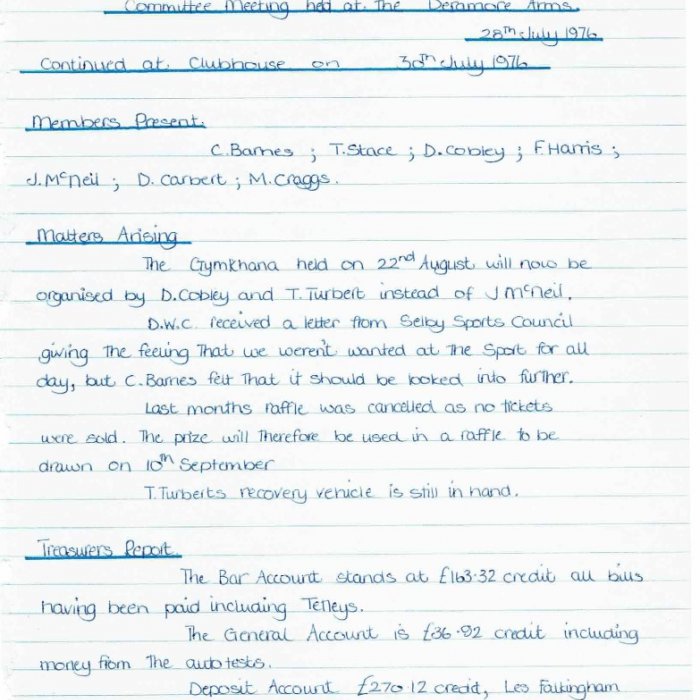 Committee Meeting held at. The Deramore Arms.
28th July 1976
Continued at. Clubhouse on 30th July 1976
Members Present.
C.Barnes ; T.Stace ; D.Cobley ; F.Harris ;
J.McNeil ; D. Carbert ; M.Craggs.
Matters Arising
The Gymkhana held on 22nd August will now be
organised by D.Cobley and T.Turbert instead of J McNeil.
D.W.C. received a letter from Selby Sports Council
giving the feeling that we weren't wanted at the Sport for all
day, but C.Barnes felt that it should be looked into further.
Last months raffle was cancelled as no tickets
were sold. The prize will therefore be used in a raffle to be
drawn on 10th September
T.Turberts recovery vehicle is still in hand.
Treasurers Report.
The Bar Account stands at £163.32 credit all bills
having been paid including Tetleys.
The General Account is £36.92 credit including
money from the autotests.
Deposit Account £270.12 credit, Les